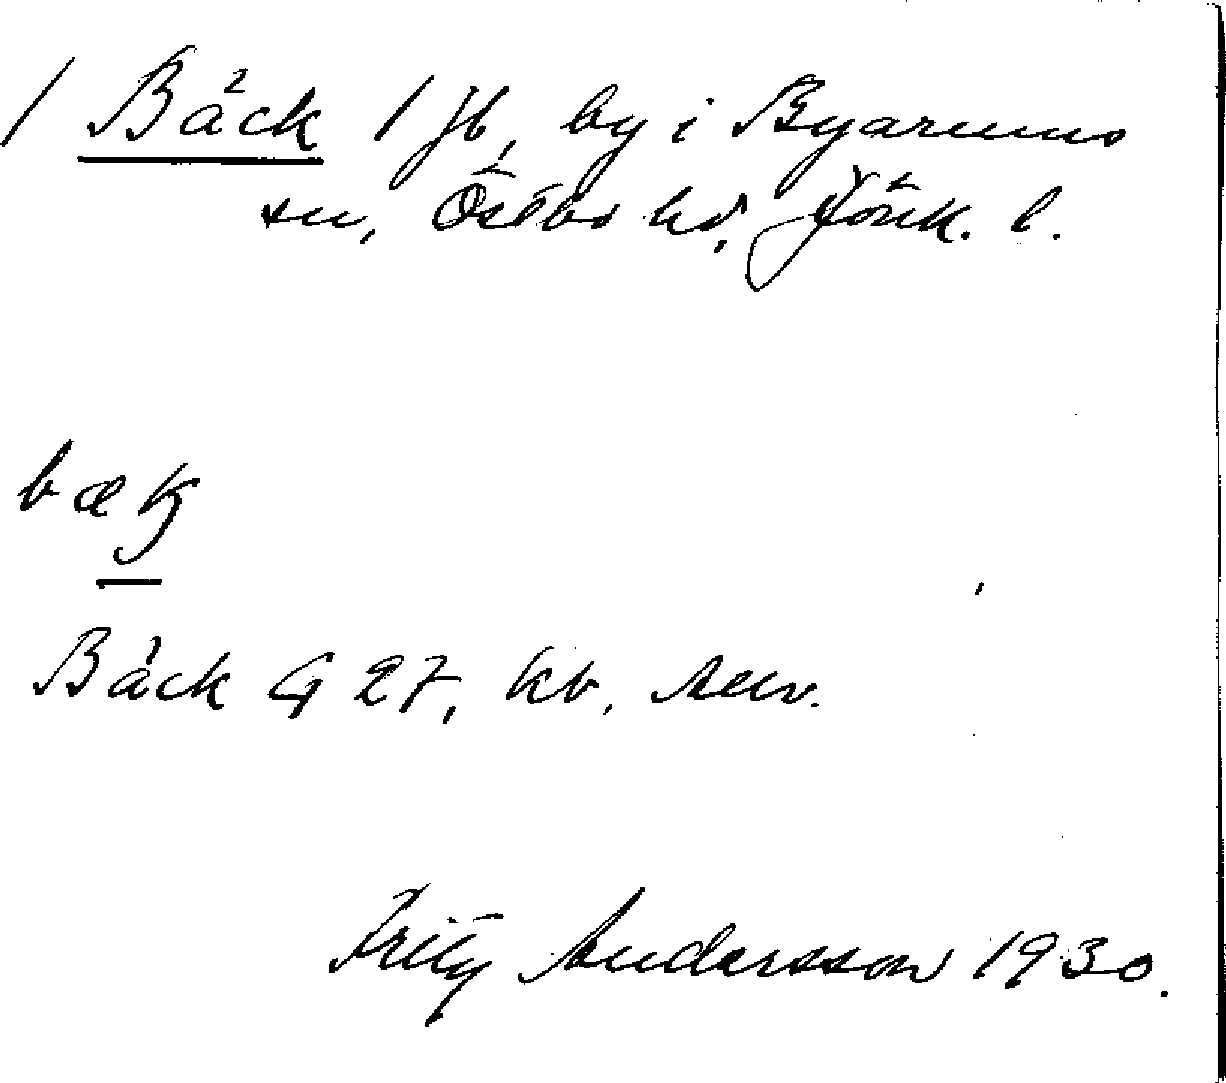 / Bäck 1 jb, by i Byarums
sn, Östbo hd, Jönk. l.
bæk
Bäck G 27, kb,
Fritz Andersson 1930.